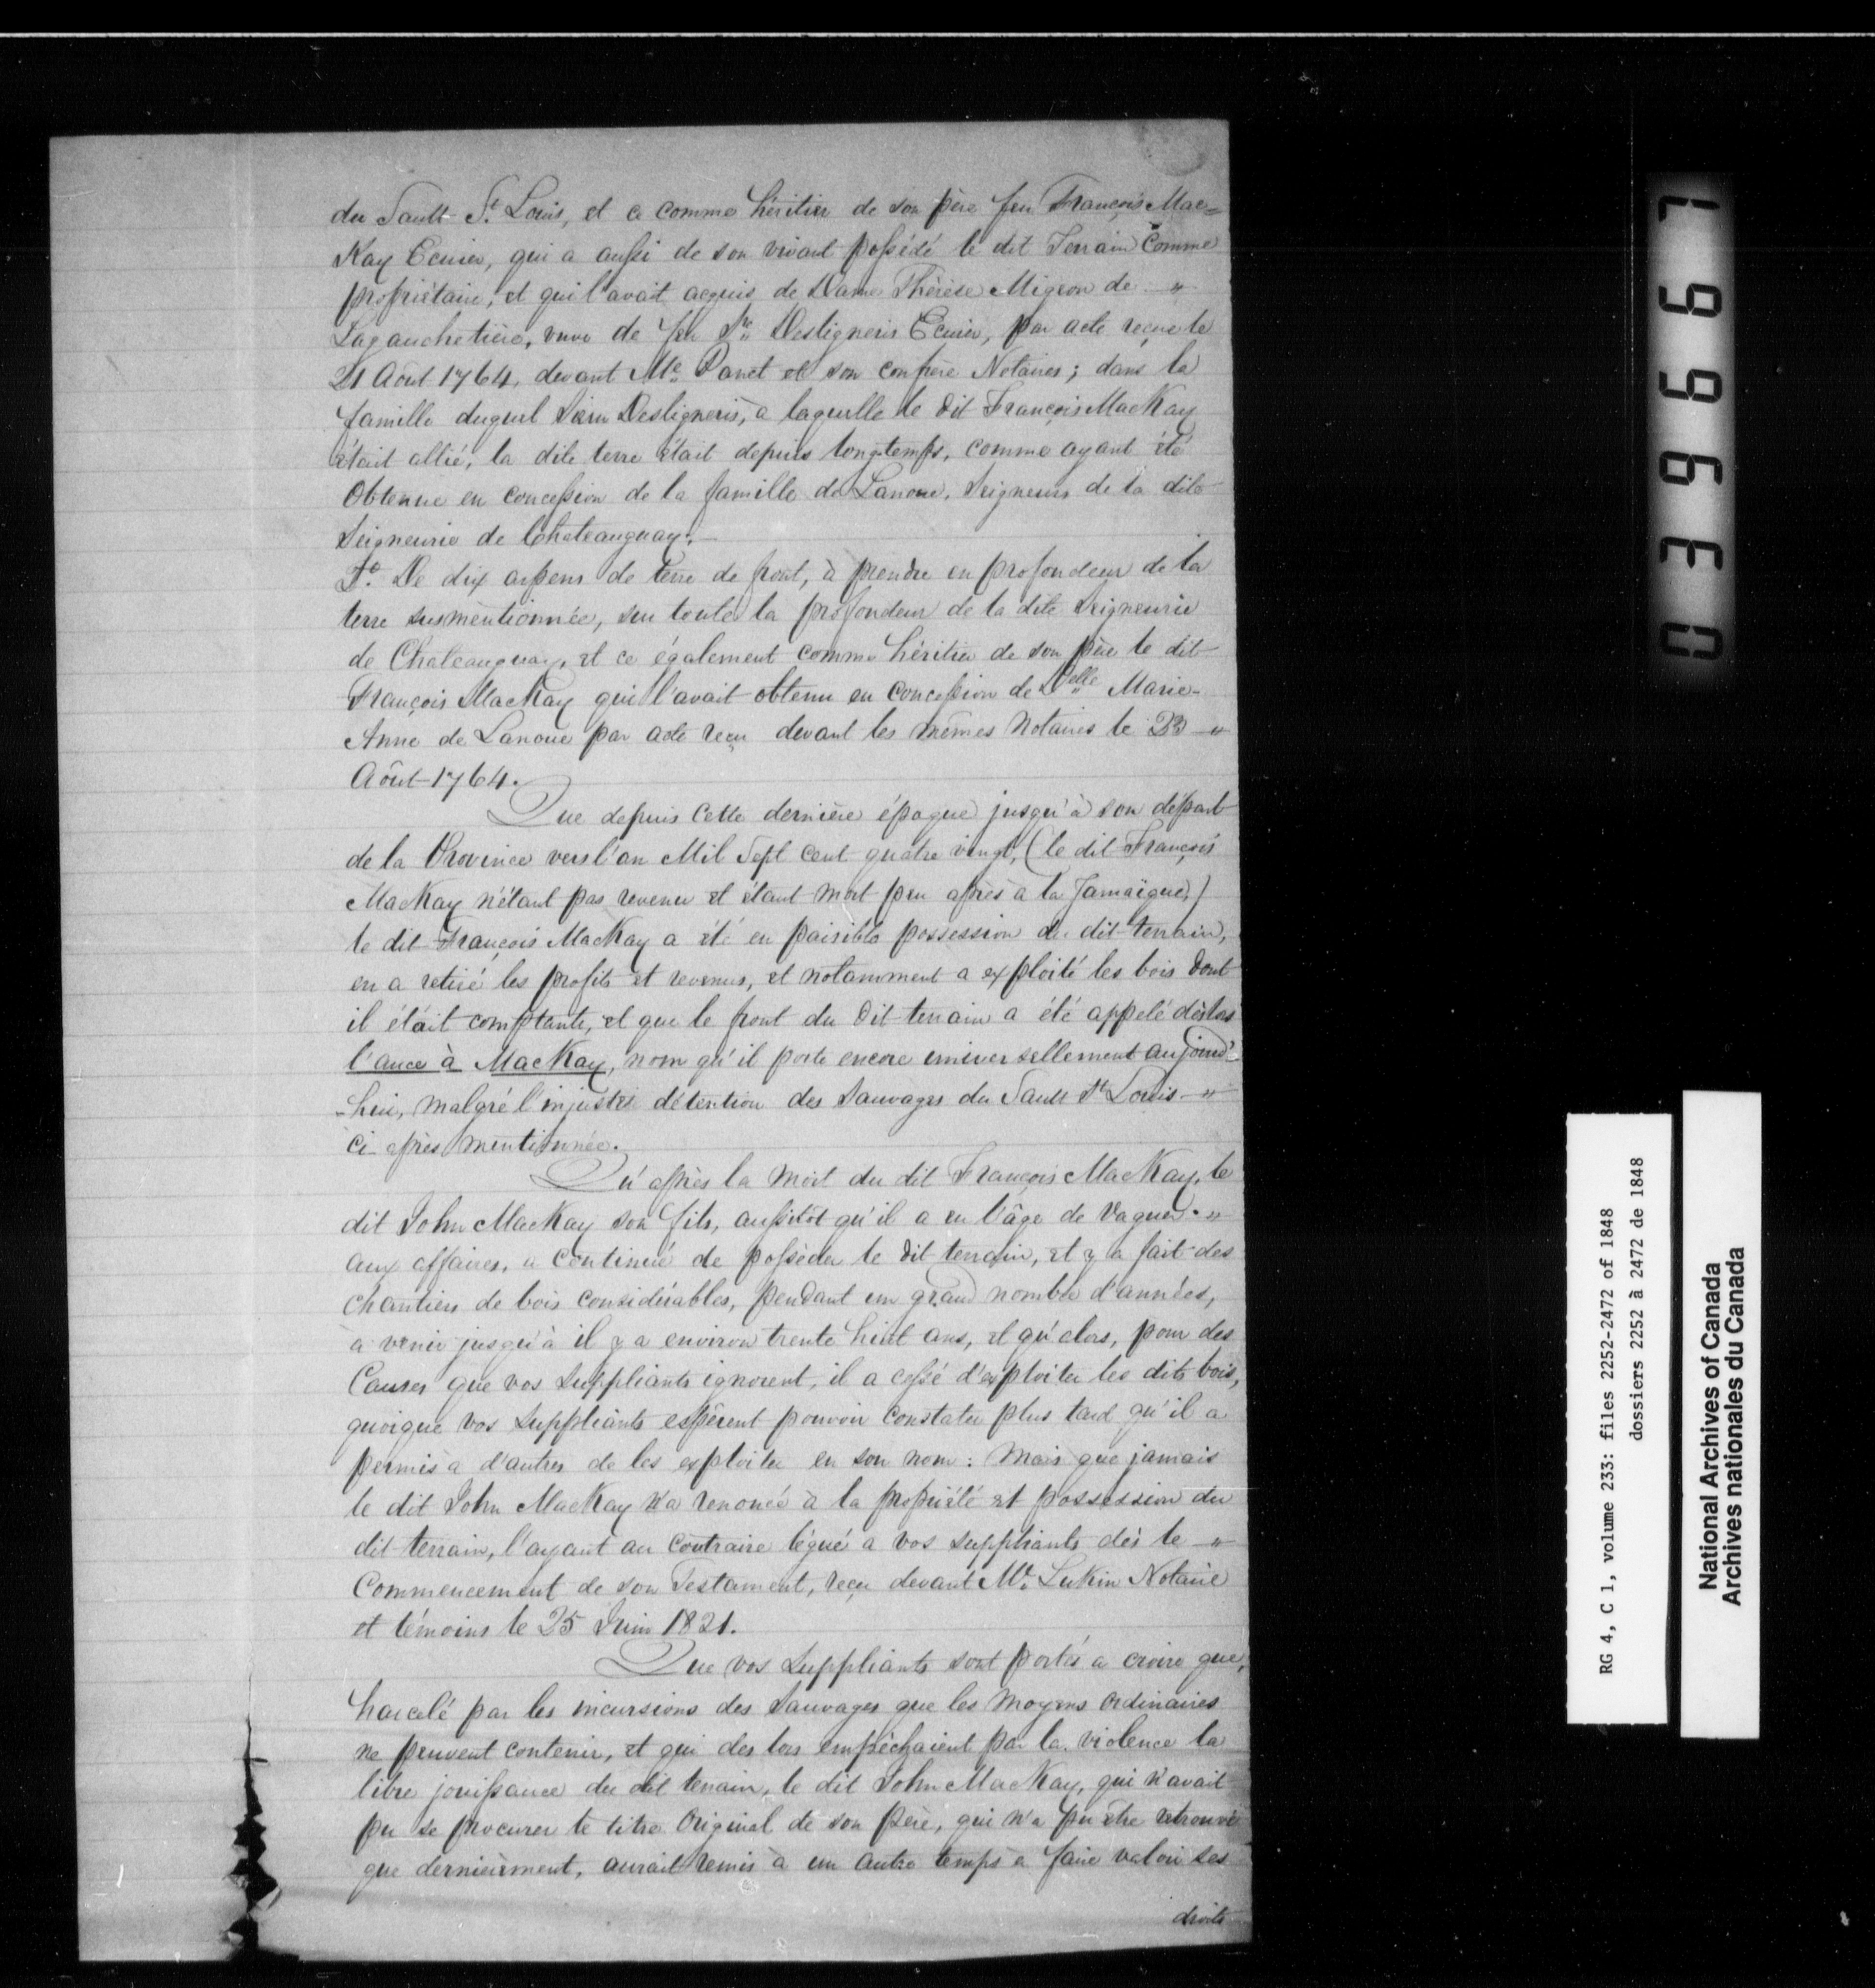 du Sault St. Louis, et ce comme héritier de son père feu François Mac=
Kay Ecuier, qui a aussi de son vivant possédé le dit Terrain comme
propriétaire, et qui l'avait acquis de Dame Thérèse Migeon de - "
Lagauchetière, veuve de feu Sr. Desligneris Ecuier, par acte reçue le
21 Août 1764, devant Me. Panet et son confrère Notaires; dans la
famille duquel Sieur Desligneris, a laquelle le dit François MacKay
était allié, la dite terre était depuis longtemps, comme ayant été
Obtenue en concession de la famille de Lanoue, Seigneurs de la dite
Seigneurie de Chateauguay.-
De dix arpens de terre de front, à prendre en profondeur de la
terre susmentionnée, sur toute la profondeur de la dite Seigneurie
de Chateauguay, et ce également comme héritier de son père le dit
François MacKay qui l'avait obtenu en Concession de Delle Marie-
Anne de Lanoue par acte reçu devant les mêmes Notaires le 23 - "
Août 1764.
Que depuis cette dernière époque jusqu'à son départ
de la Province vers l'an Mil Sept cent quatre vingt, (le dit François
MacKay n'étant pas revenu et étant mort peu après à la Jamaïque,)
le dit François MacKay a été en paisible possession du dit terrain,
en a retiré les profits et revenus, et notamment a exploité les bois dont
il était complanté, et que le front du dit terrain a été appelé dèslors
l'ance à MacKay, nom qu'il porte encore universellement aujourd'-
-hui, malgré l'injuste détention des Sauvages du Sault St Louis - "
ci après mentionnée.
Qu'après la mort du dit François MacKay, le
dit John MacKay son fils, aussitôt qu'il a eu l'âge de vaquer - "
aux affaires, a continué de posséder le dit terrain, et y a fait des
chantiers de bois considérables, pendant un grand nombre d'années,
à venir jusqu'à il y a environ trente huit ans, et qu'alors, pour des
Causes que vos Suppliants ignorent, il a cessé d'exploiter les dits bois,
quoique vos Suppliants espèrent pouvoir constater plus tard qu'il a
permis à d'autres de les exploiter en son nom: Mais que jamais
le dit John MacKay n'a renoncé à la propriété et possession du
dit terrain, l'ayant au contraire légué a vos suppliants dès le - "
Commencement de son Testament, reçu devant Me. Lukin Notaire
et témoins le 25 Juin 1821.
Que vos Suppliants sont portés a croire que,
harcelé par les incursions des Sauvages que les moyens ordinaires
ne peuvent contenir, et qui des lors empêchaient par la violence la
libre jouissance du dit terrain, le dit John MacKay, qui n'avait
pu se procurer le titre Original de son père, qui n'a pu être retrouvé
que dernièrement, aurait remis à un autre temps à faire valoir ses
droits
039667
RG 4, C 1, volume 233: files 2252-2472 of 1848
dossiers 2252 à 2472 de 1848
National Archives of Canada
Archives nationales du Canada